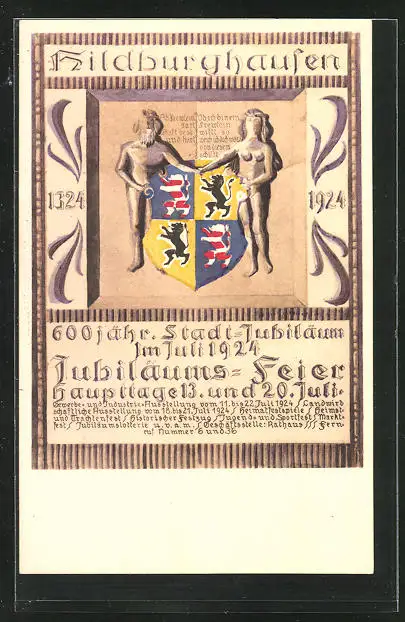 Hildburghausen
1324
1924
600jähr. Stadt-Jubiläum
Im Juli 1924
Jubiläums-Feier
Haupttage 13. und 20. Juli.
Gewerbe- und Industrie-Ausstellung vom 11. bis 22. Juli 1924 / Landwirt
schaftliche Ausstellung vom 18. bis 21. Juli 1924 / Heimatfestspiele / Heimat-
und Trachtenfest / Historischer Festzug / Jugend- und Sportfest / Markt-
fest / Jubiläumslotterie u.v.a.m. / Geschäftsstelle: Rathaus /// Fern-
ruf Nummer 6 und 36